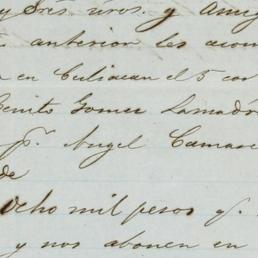 y Sres. nros. y Amig
anterior les acom
en Culiacan el 5 cor
Benito Gomez Lamadri
pr. Angel Camare
de
Ocho mil pesos q.
y nos abonen en